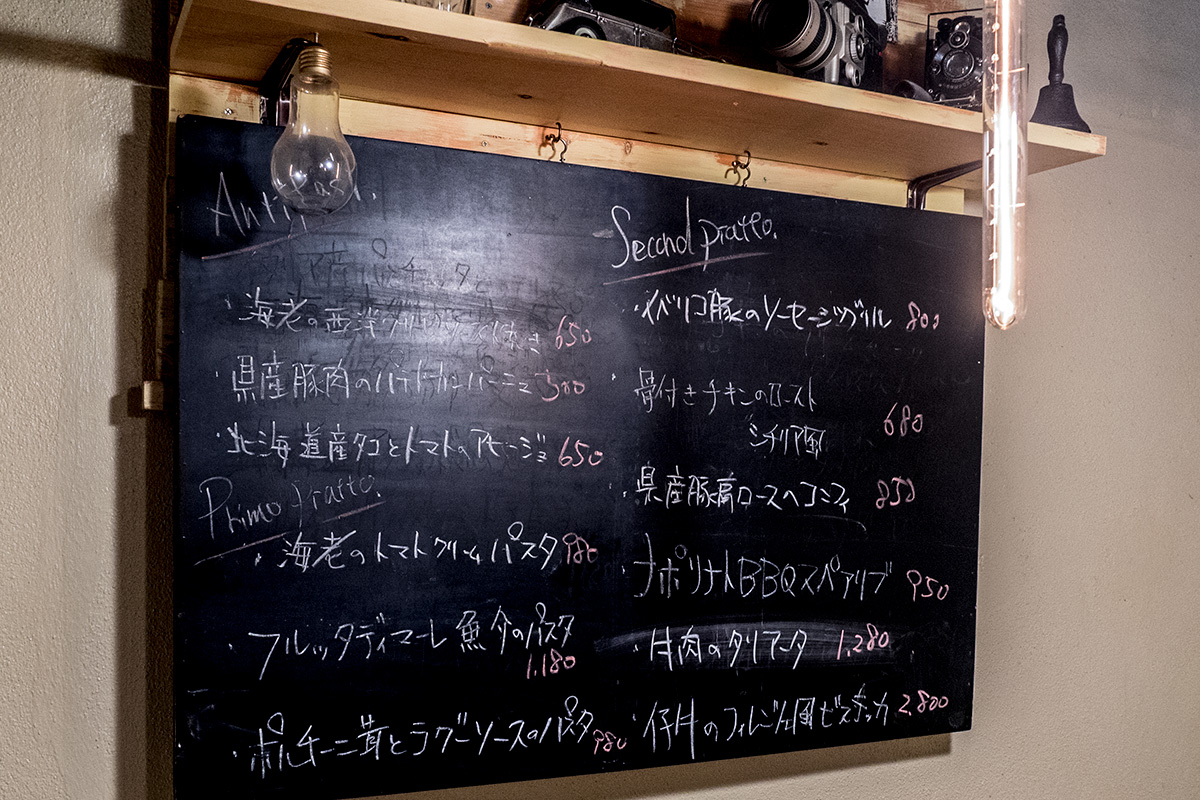 Antipasti.
海老の西洋 650
県産豚肉のパテドカンパーニュ 500
北海道産タコとトマトのアヒージョ 650
Primo Piatto.
海老のトマトクリームパスタ 980
フルッタディマーレ 魚介のパスタ
1,180
ポルチーニ茸とラグーソースのパスタ 980
Second piatto.
イベリコ豚のソーセージグリル 800
骨付きチキンのロースト
シチリア風 680
県産豚肩ロースのコンフィ 850
ナポリナトBBQスペアリブ 950
牛肉のタリアータ 1,280
仔牛のフィレンツェ風ビステッカ 2,800